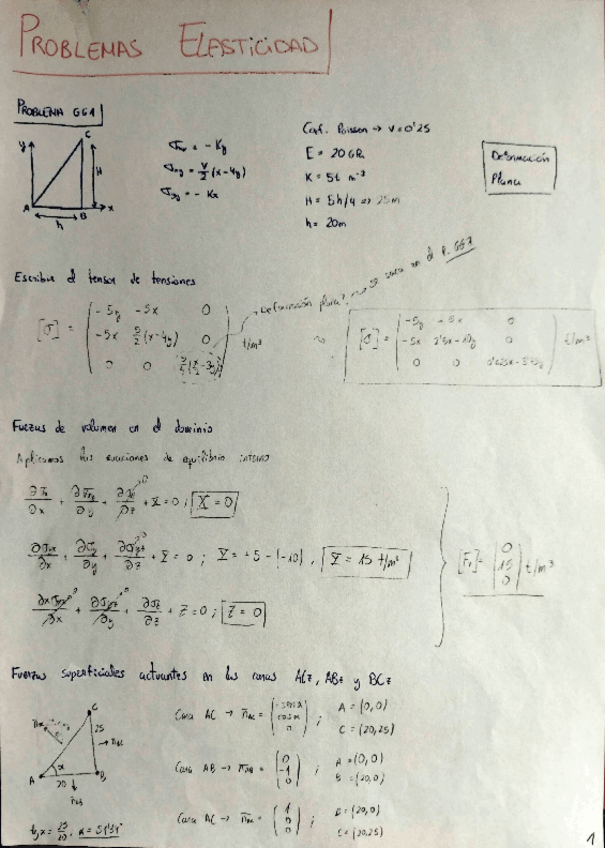 PROBLEMAS ELASTICIDAD
PROBLEMA 661
y C H A B x h
= - Ky
= (x-4y)
= - Kx
Coef. Poisson → ν = 0'25
E = 20 GPa
K = 5t m⁻³
H = 5h/4 ⇒ 25m
h = 20m
Deformación
Plana
Escribir el tensor de tensiones
[σ] = ( -5y -5x 0
-5x 5/2 (x-4y) 0
0 0 ) t/m²
→ Deformación plana? → Se saca en el P. 667
[σ] = ( -5y -5x 0
-5x 2'5x-10y 0
0 0 ) t/m²
Fuerzas de volumen en el dominio
Aplicamos las ecuaciones de equilibrio interno
+ X = 0 ; X = 0
+ Y = 0 ; Y = +5 - (-10) , Y = 15 t/m³
+ Z = 0 ; Z = 0
[Fv] = ( 0 15 0 ) t/m³
Fuerzas superficiales actuantes en las caras ACz, ABz y BCz
C 25 α A 20 B
Cara AC → n̄AC = ( -senα cosα 0 ) ; A = (0,0) C = (20,25)
Cara AB → n̄AB = ( 0 -1 0 ) ; A = (0,0) B = (20,0)
Cara AC → = ( 1 0 0 ) ; B = (20,0) C = (20,25)
tg α = 25/20 ; α = 51'34°
1